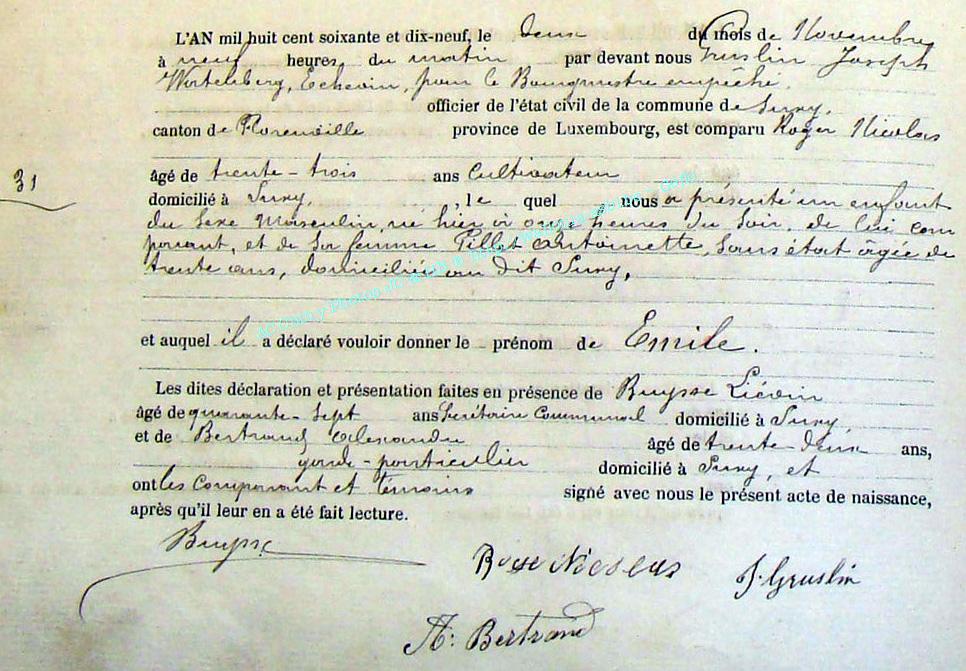 L'AN mil huit cent soixante et dix-neuf, le deux du mois de Novembre
à neuf heures du matin par devant nous Gruslin Joseph
Echevin, pour le Bourgmestre empêché,
officier de l'état civil de la commune de Suxy,
canton de Florenville province de Luxembourg, est comparu Roger Nicolas
31
âgé de trente-trois ans Cultivateur
domicilié à Suxy, , le quel nous a présenté un enfant
du Sexe Masculin, né hier à onze heures du Soir, de lui com
parant, et de Sa femme Pillot Antoinette, Sans état âgée de
trente ans, domiciliée au dit Suxy,
et auquel il a déclaré vouloir donner le prénom de Emile.
Les dites déclaration et présentation faites en présence de Buysse Liévin
âgé de quarante-Sept ans Secrétaire Communal domicilié à Suxy,
et de Bertrand Alexandre âgé de trente-deux ans,
garde-particulier domicilié à Suxy, et
ont les comparant et témoins signé avec nous le présent acte de naissance,
après qu'il leur en a été fait lecture.
Buysse
Nicolas J. Gruslin
A: Bertrand